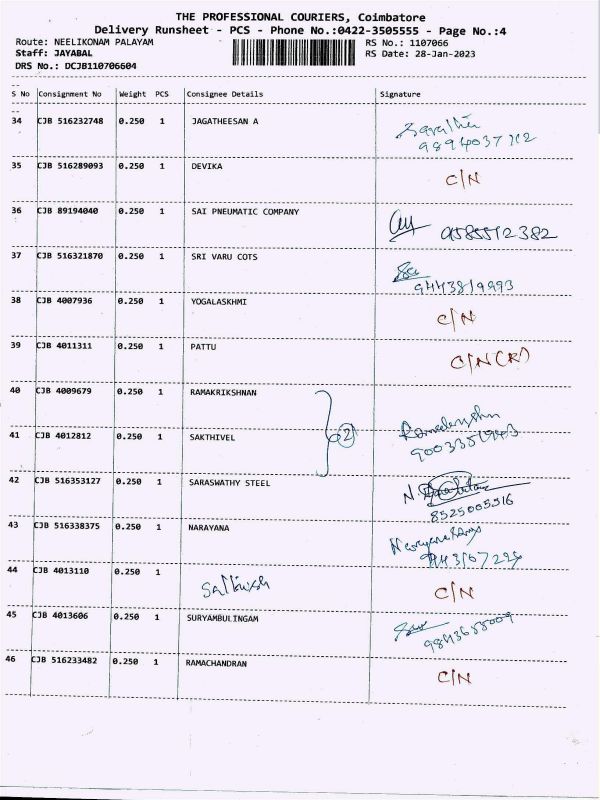 THE PROFESSIONAL COURIERS, Coimbatore
Delivery Runsheet - PCS - Phone No.:0422-3505555 - Page No.:4
Route: NEELIKONAM PALAYAM RS No.: 1107066
Staff: JAYABAL RS Date: 28-Jan-2023
DRS No.: DCJB110706604
S No Consignment No Weight PCS Consignee Details Signature
34 CJB 516232748 0.250 1 JAGATHEESAN A
35 CJB 516289093 0.250 1 DEVIKA C/N
36 CJB 89194040 0.250 1 SAI PNEUMATIC COMPANY 9585512382
37 CJB 516321870 0.250 1 SRI VARU COTS 9443819993
38 CJB 4007936 0.250 1 YOGALASKHMI C/N
39 CJB 4011311 0.250 1 PATTU C/N (R)
40 CJB 4009679 0.250 1 RAMAKRIKSHNAN
41 CJB 4012812 0.250 1 SAKTHIVEL 2
42 CJB 516353127 0.250 1 SARASWATHY STEEL 8525005516
43 CJB 516338375 0.250 1 NARAYANA
44 CJB 4013110 0.250 1 C/N
45 CJB 4013606 0.250 1 SURYAMBULINGAM 9843655009
46 CJB 516233482 0.250 1 RAMACHANDRAN C/N